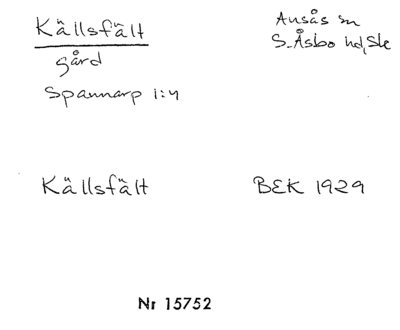 Källsfält
gård
Spannarp 1:4
Ausås sn
S. Åsbo hd, Sk
Källsfält
BEK 1929
Nr 15752